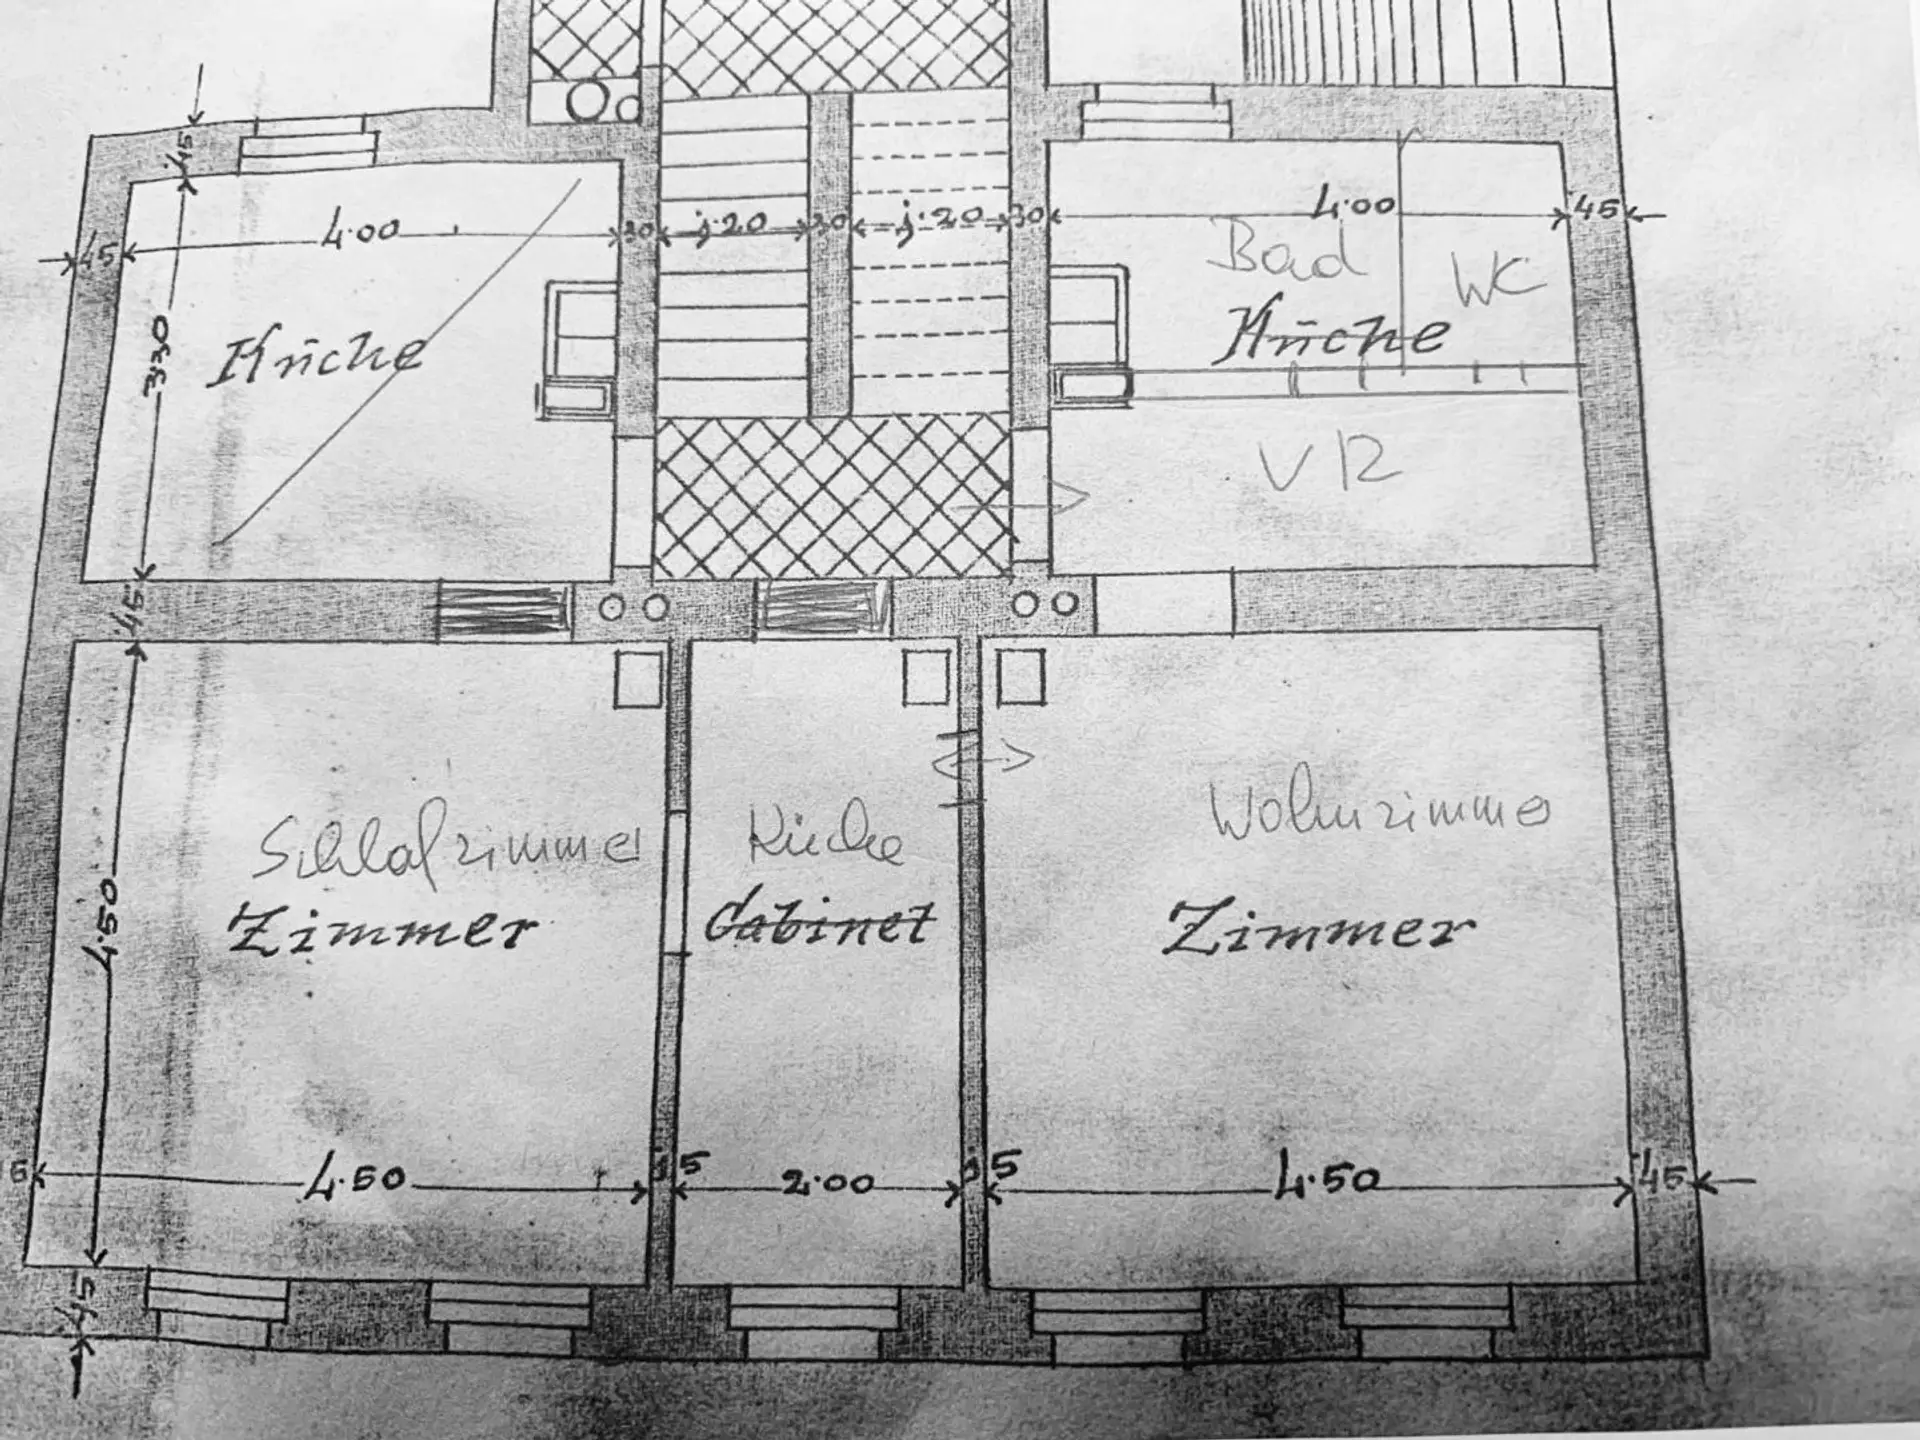 45
4.00
30
1.20
30
1.20
30
4.00
45
45
Bad
WC
Küche
Küche
3.30
VR
45
Schlafzimmer
Küche
Wohnzimmer
Zimmer
Cabinet
Zimmer
4.50
4.50
15
2.00
15
4.50
45
45